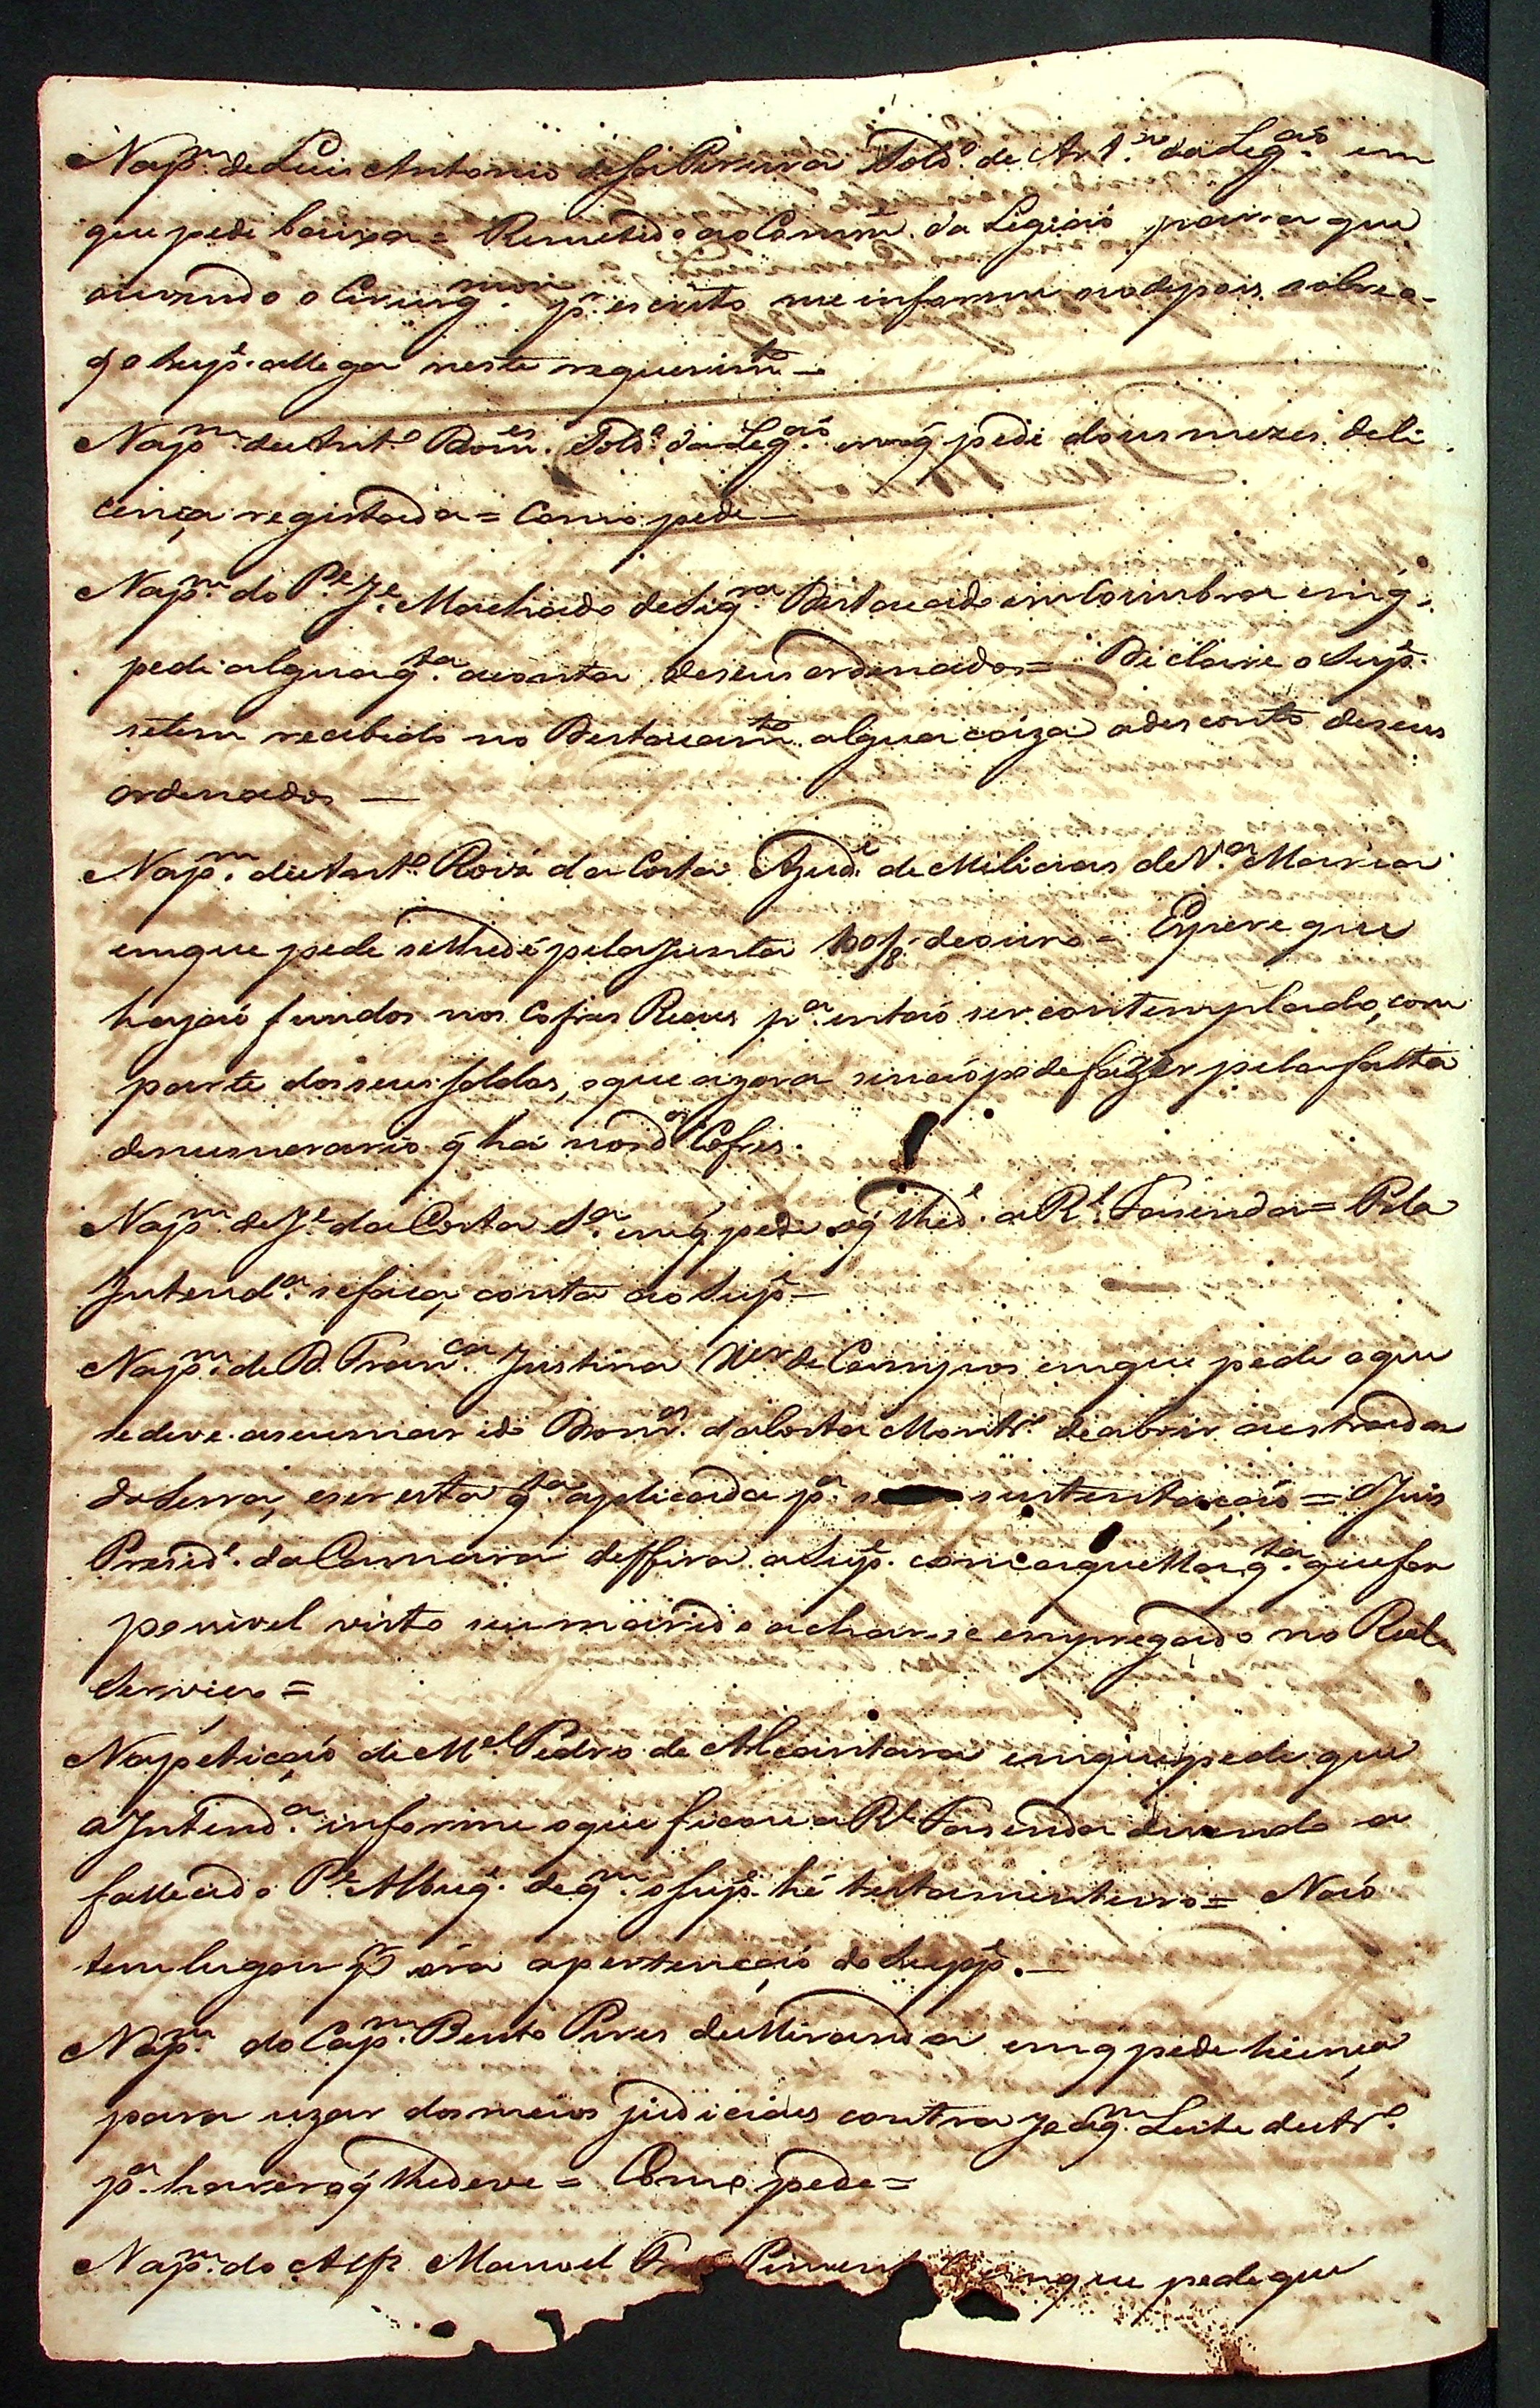 Na p.m de Luis Antonio de Sa Pereira Sold.o de Art.a da Leg.ão em
que pede baixa = Remetido ao Comm.e da Legiaõ para que
ouvindo o Cirurg. mor p.r escrito me informe no depois sobre o
q̃ o Supp.e allega neste requerim.to —
Na p.m de Ant.o Dom.es Sold.o da Leg.ão em q̃ pede dous mezes de li
cença registada = Como pede —
Na p.m do P.e J.e Machado de Siq.ra Destacado em Coimbra em q̃
pede algua q.ta a conta de seus ordenados = Declare o Sup.e
se tem recebido no Destacam.to algua coiza a desconto de seus
ordenados —
Na p.m de Ant.o Roiz da Costa Ajud.e de Milicias de V.a Maria
em que pede se lhe dê pela Junta 100/8.as de ouro = Espere que
hajaõ fundos nos Cofres Reaes p.a entaõ ser contemplado, com
parte dos seus soldos, o que agora se naõ pode fazer pela falta
de numerario q̃ há nos d.os Cofres.
Na p.m de J.e da Costa S.a em q̃ pede o q̃ lhe d.e a R.l Fazenda = Pela
Intend.a se faça conta ao Sup.e —
Na p.m de D. Fran.ca Justina X.er de Campos em que pede o que
se deve a seu marido Dom.os da Costa Montr.o de abrir a estrada
da Serra, e ser esta q.ta aplicada p.a sustentaçaõ = O Juis
Presid.e da Camara deffira a Sup.e com aquella q.ta que for
possivel visto seu marido achar-se empregado no Real
Serviço =
Na petiçaõ de M.el Pedro de Alcantara em que pede que
a Intend.a informe o que ficou a R.l Fazenda devendo a
fallecido P.e Albuq.e de q.m o Sup.e hé testamenteiro = Naõ
tem lugar p.r óra a pertençaõ do Supp.e —
Na p.m do Cap.m Bento Pires de Miranda em q pede licença
para uzar dos meios judiciaes contra Joaq.m Leite de Ar.o
p.a haver o q̃ lhe deve = Como pede =
Na p.m do Alf.z Manoel em que pede que